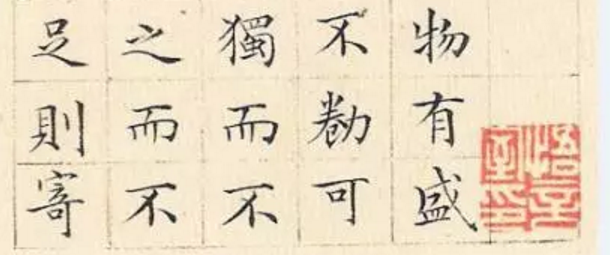 物有盛
不勌可
獨而不
之而不
足則寄